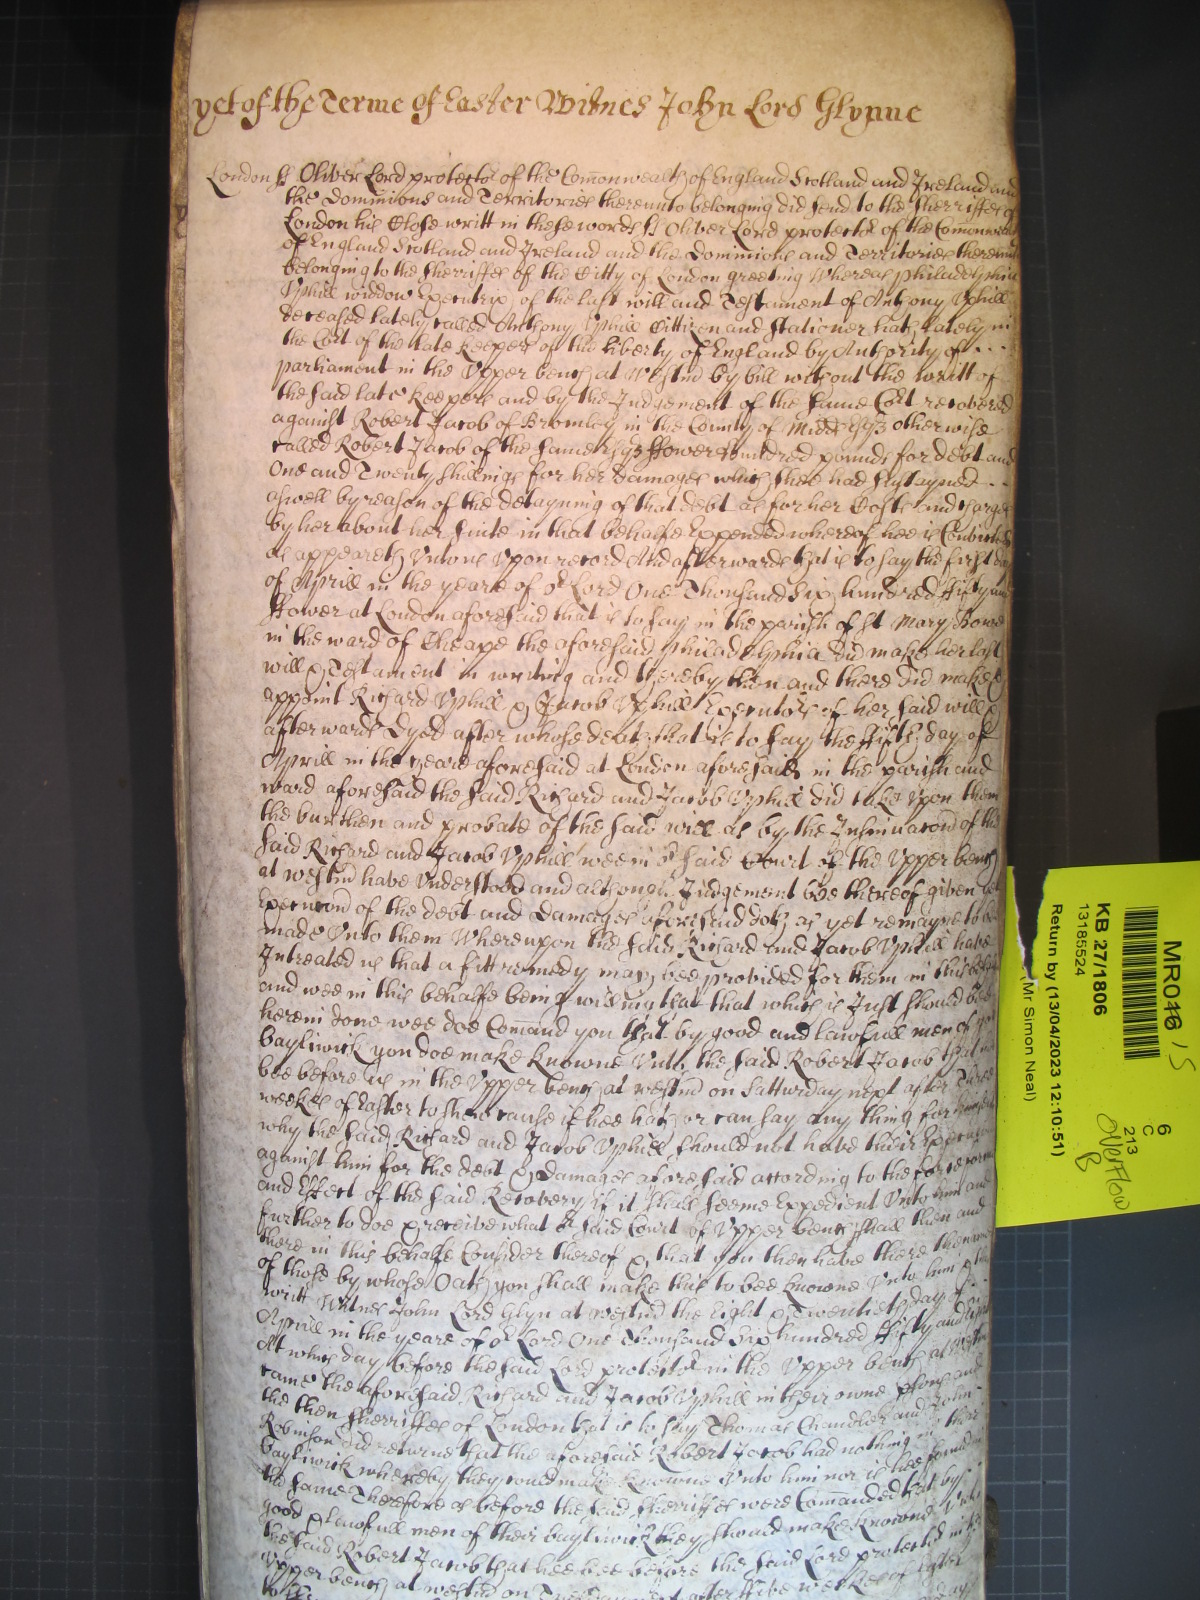 yet of the Terme of Easter Witnes John Lord Glynne
London ss Oliver Lord protector of the Comonwealth of England Scotland and Ireland and
the Dominions and Territories thereunto belonging did send to the Sherriffes of
London his Close writt in these words ss Oliver Lord protector of the Commonwealth
of England Scotland and Ireland and the Dominions and Territories thereunto
belonging to the Sherriffes of the Citty of London greeting Whereas Philadelphia
Uphill widdow Executrix of the last will and Testament of Anthony Uphill
deceased lately called Anthony Uphill Cittizen and Stationer hath lately in
the Cort of the late Keepers of the liberty of England by Authority of
parliament in the Upper bench at Westmr by bill without the writt of
the said late Keepers and by the Judgement of the same Cort recovered
against Robert Jacob of Bromley in the County of Middx otherwise
called Robert Jacob of the same ffower hundred pounds for debt and
One and Twenty shillings for her damages which shee had sustayned
aswell by reason of the detayning of that debt as for her Costs and charges
by her about her suite in that behalfe Expended whereof hee is Convicted
as appeareth Unto us Upon record And afterwards that is to say the first day
of Aprill in the yeare of or Lord One Thousand Six hundred fifty and
ffower at London aforesaid that is to say in the parish of St Mary Bowe
in the ward of Cheape the aforesaid Philadelphia did make her last
will & Testament in writing and thereby then and there did make &
appoint Richard Uphill & Jacob Uphill Executors of her said will &
afterwards Dyed after whose death that is to say the ffifth day of
Aprill in the yeare aforesaid at London aforesaid in the parish and
ward aforesaid the said Richard and Jacob Uphill did take Upon them
the burthen and probate of the said will as by the Insinuacon of the
said Richard and Jacob Uphill wee in or said Court of the Upper bench
at westmr have Understood and although Judgement bee thereof given yet
Execucon of the debt and Damages aforesaid doth as yet remayne to be
made Unto them Whereupon the said Richard and Jacob Uphill have
Intreated us that a fitt remedy may bee provided for them in this behalfe
and wee in this behalfe being willing that that which is Just should bee
herein done wee doe Comand you that by good and lawfull men of yor
Bayliwick you doe make knowne Unto the said Robert Jacob that hee
bee before us in the Upper bench at westmr on Satturday next after Three
weekes of Easter to shew cause if hee hath or can say any thing for himselfe
why the said Richard and Jacob Uphill should not have their Execucon
against him for the debt & Damages aforesaid according to the force
and Effect of the said Recovery if it shall seeme Expedient Unto him and
further to doe & receive what or said Court of Upper bench shall then and
there in this behalfe Consider thereof & that you then have there the names
of those by whose Oath you shall make this to bee knowne Unto him & this
writt Witnes John Lord Glyn at westmr the Eight & Twentieth day of
Aprill in the yeare of or Lord One Thousand Six hundred ffifty and
At which day before the said Lord protector in the Upper bench at Westmr
came the aforesaid Richard and Jacob Uphill in their owne psons and
the then Sherriffes of London that is to say Thomas Chandler and John
Robinson did returne that the aforesaid Robert Jacob had nothing in their
bayliwick whereby they could make knowne Unto him nor is hee found in
the same Therefore as before the said Sherriffes were Comanded that by
good & lawfull men of their bayliwick they should make knowne Unto
the said Robert Jacob that hee bee before the said Lord protector in the
Upper bench at westmr on next after ffive weekes of Easter
MR016 15
KB 27/1806
13185524
Return by (13/04/2023 12:10:51)
(Mr Simon Neal)
6
C
213
Overflow
B